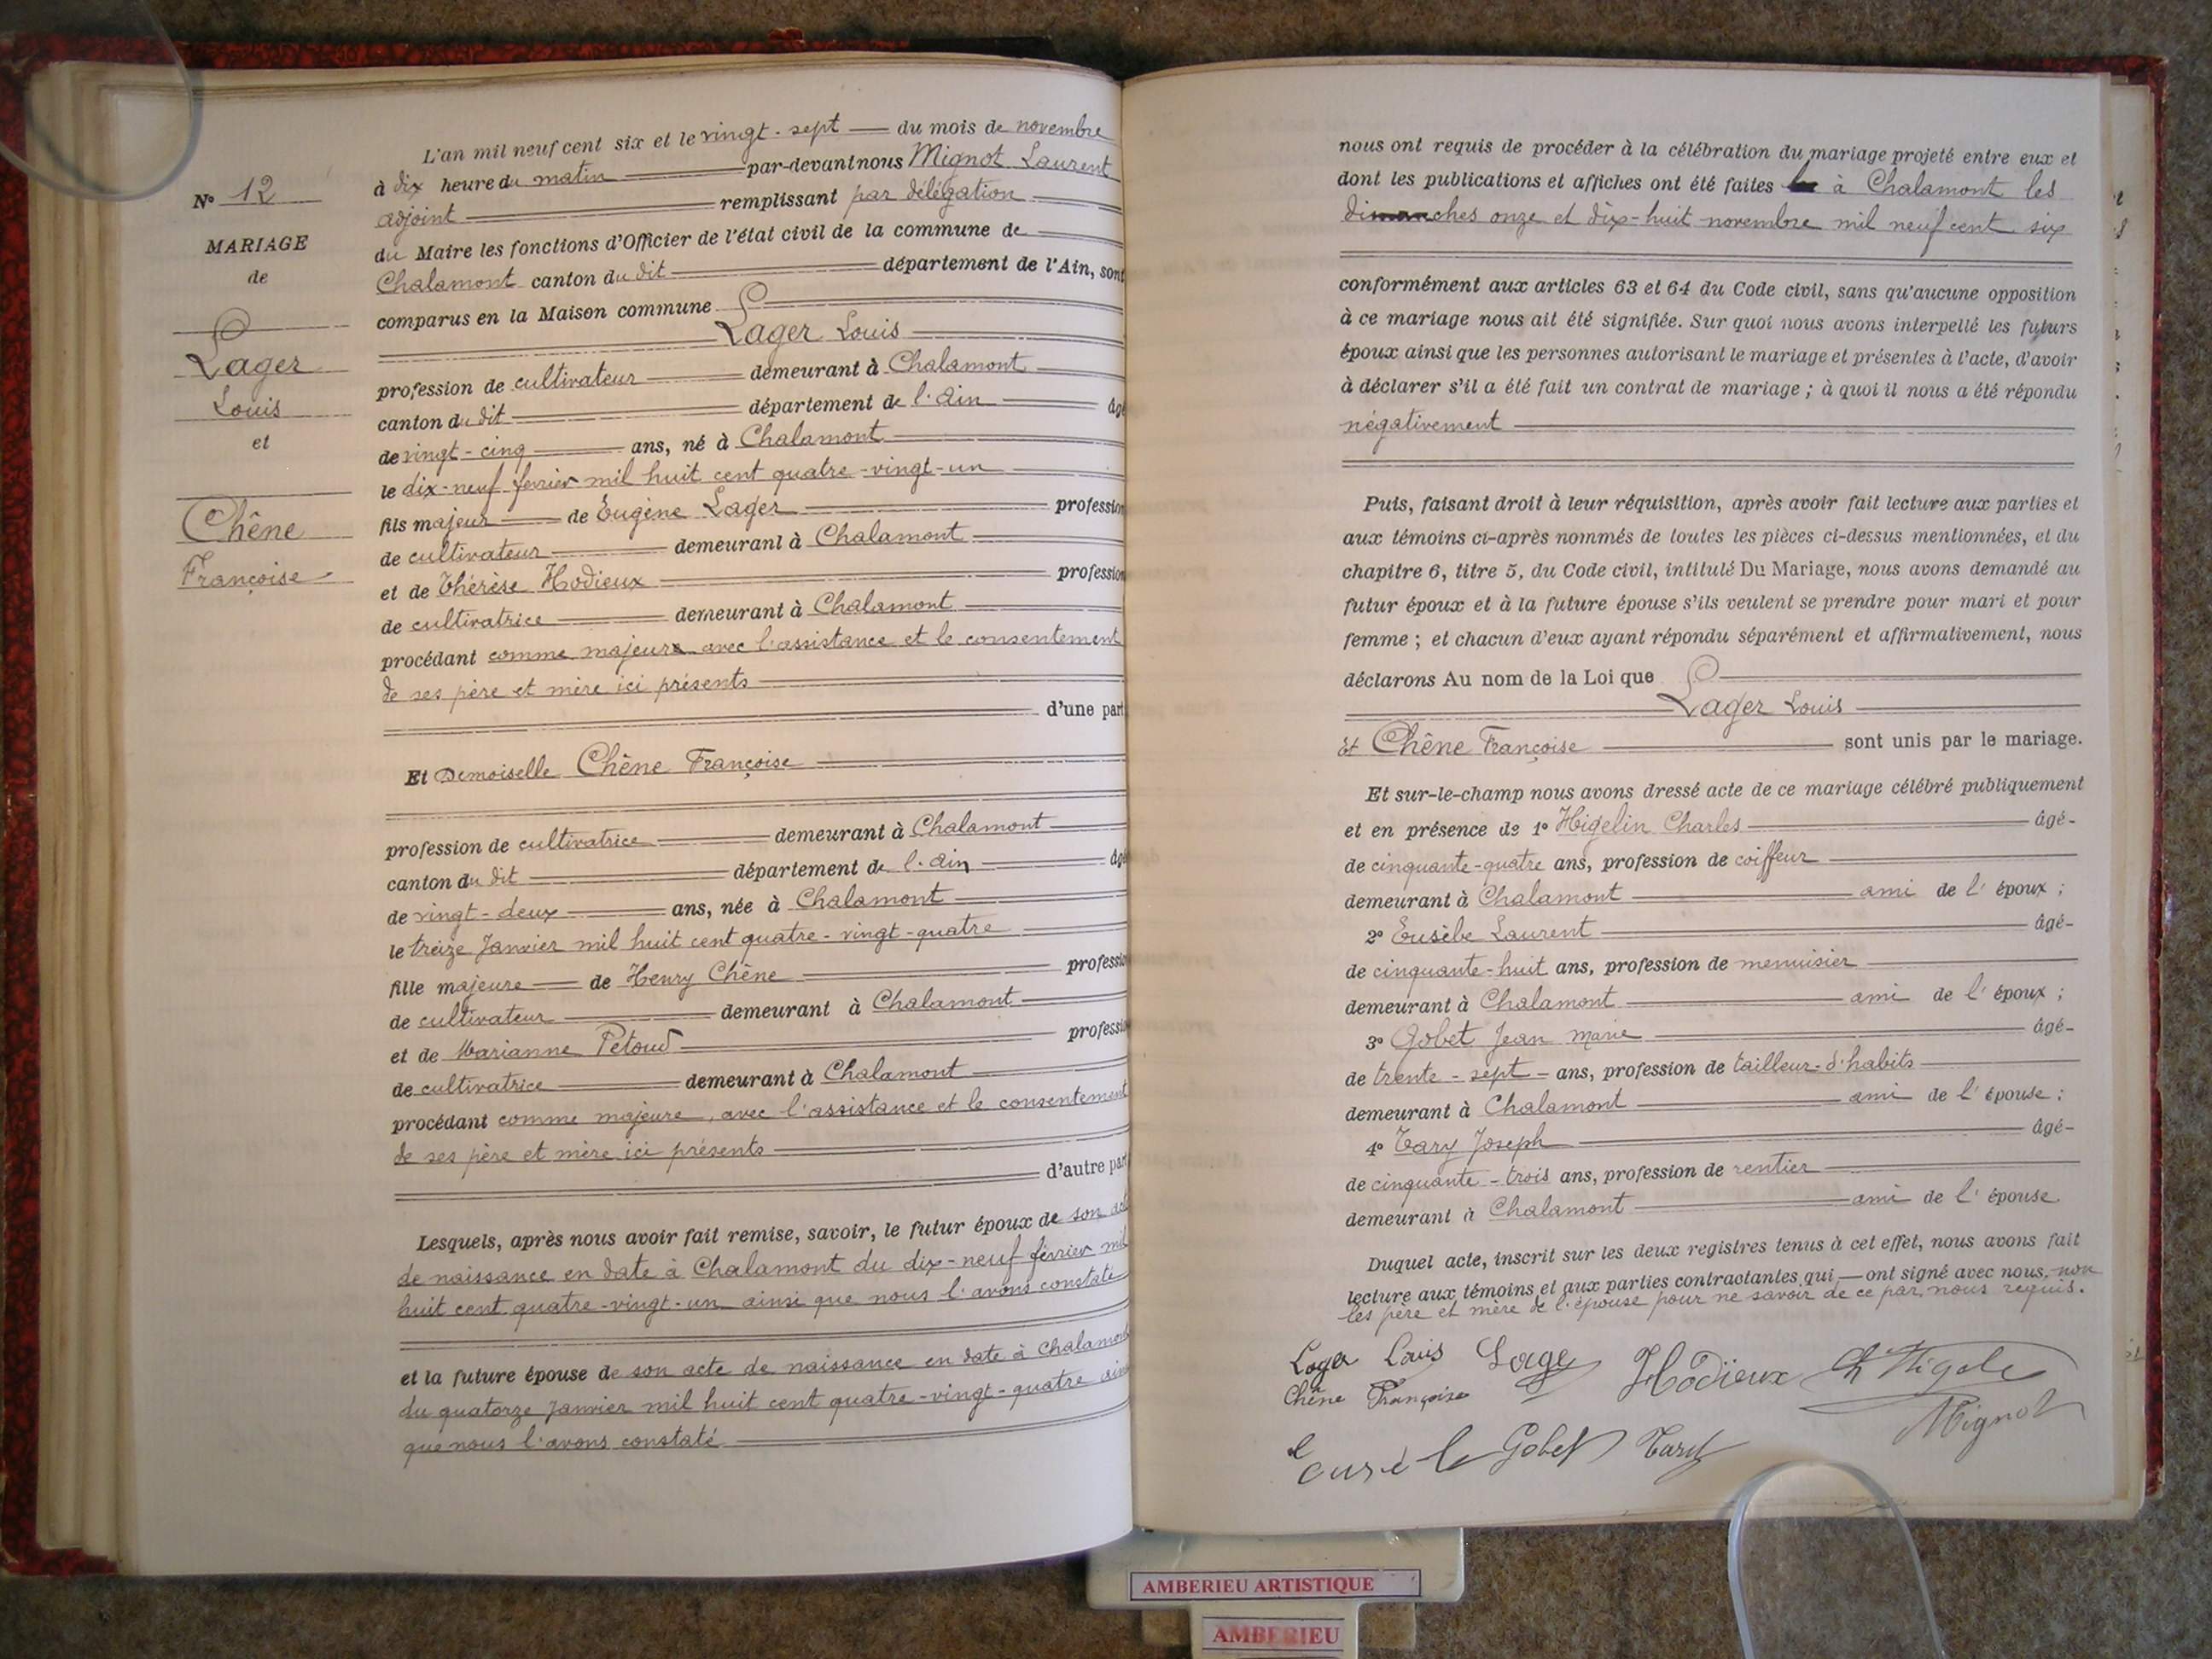 N° 12
MARIAGE
de
Lager
Louis
et
Chêne
Françoise
L'an mil neuf cent six et le vingt-sept du mois de novembre
à dix heure du matin par-devant nous Mignot Laurent
adjoint remplissant par délégation
du Maire les fonctions d'Officier de l'état civil de la commune de
Chalamont canton du dit département de l'Ain, sont
comparus en la Maison commune
Lager Louis
profession de cultivateur demeurant à Chalamont
canton du dit département de l'ain âgé
de vingt-cinq ans, né à Chalamont
le dix-neuf février mil huit cent quatre-vingt-un
fils majeur de Eugène Lager profession
de cultivateur demeurant à Chalamont
et de Thérèse Hodieux profession
de cultivatrice demeurant à Chalamont
procédant comme majeur avec l'assistance et le consentement
de ses père et mère ici présents
d'une part
Et Demoiselle Chêne Françoise
profession de cultivatrice demeurant à Chalamont
canton du dit département de l'ain âgé
de vingt-deux ans, née à Chalamont
le treize Janvier mil huit cent quatre-vingt-quatre
fille majeure de Henry Chêne professio
de cultivateur demeurant à Chalamont
et de Marianne Petoud professio
de cultivatrice demeurant à Chalamont
procédant comme majeure, avec l'assistance et le consentement
de ses père et mère ici présents
d'autre part
Lesquels, après nous avoir fait remise, savoir, le futur époux de son act
de naissance en date à Chalamont du dix-neuf février mil
huit cent quatre-vingt-un ainsi que nous l'avons constaté
et la future épouse de son acte de naissance en date à Chalamont
du quatorze Janvier mil huit cent quatre-vingt-quatre ains
que nous l'avons constaté
nous ont requis de procéder à la célébration du mariage projeté entre eux et
dont les publications et affiches ont été faites à Chalamont les
dimanches onze et dix-huit novembre mil neuf cent six
conformément aux articles 63 et 64 du Code civil, sans qu'aucune opposition
à ce mariage nous ait été signifiée. Sur quoi nous avons interpellé les futurs
époux ainsi que les personnes autorisant le mariage et présentes à l'acte, d'avoir
à déclarer s'il a été fait un contrat de mariage ; à quoi il nous a été répondu
négativement
Puis, faisant droit à leur réquisition, après avoir fait lecture aux parties et
aux témoins ci-après nommés de toutes les pièces ci-dessus mentionnées, et du
chapitre 6, titre 5, du Code civil, intitulé Du Mariage, nous avons demandé au
futur époux et à la future épouse s'ils veulent se prendre pour mari et pour
femme ; et chacun d'eux ayant répondu séparément et affirmativement, nous
déclarons Au nom de la Loi que
Lager Louis
Et Chêne Françoise sont unis par le mariage.
Et sur-le-champ nous avons dressé acte de ce mariage célébré publiquement
et en présence de 1° Higelin Charles âgé
de cinquante-quatre ans, profession de coiffeur
demeurant à Chalamont ami de l'époux ;
2° Eusèbe Laurent âgé
de cinquante-huit ans, profession de menuisier
demeurant à Chalamont ami de l'époux ;
3° Gobet Jean Marie âgé
de trente-sept ans, profession de tailleur-d'habits
demeurant à Chalamont ami de l'épouse ;
4° Tary Joseph âgé
de cinquante-trois ans, profession de rentier
demeurant à Chalamont ami de l'épouse
Duquel acte, inscrit sur les deux registres tenus à cet effet, nous avons fait
lecture aux témoins et aux parties contractantes qui ont signé avec nous, non
les père et mère de l'épouse pour ne savoir de ce par nous requis.
Lager Louis Lager Hodieux
Chêne Françoise Mignot
Gobet Tary
AMBERIEU ARTISTIQUE
AMBERIEU